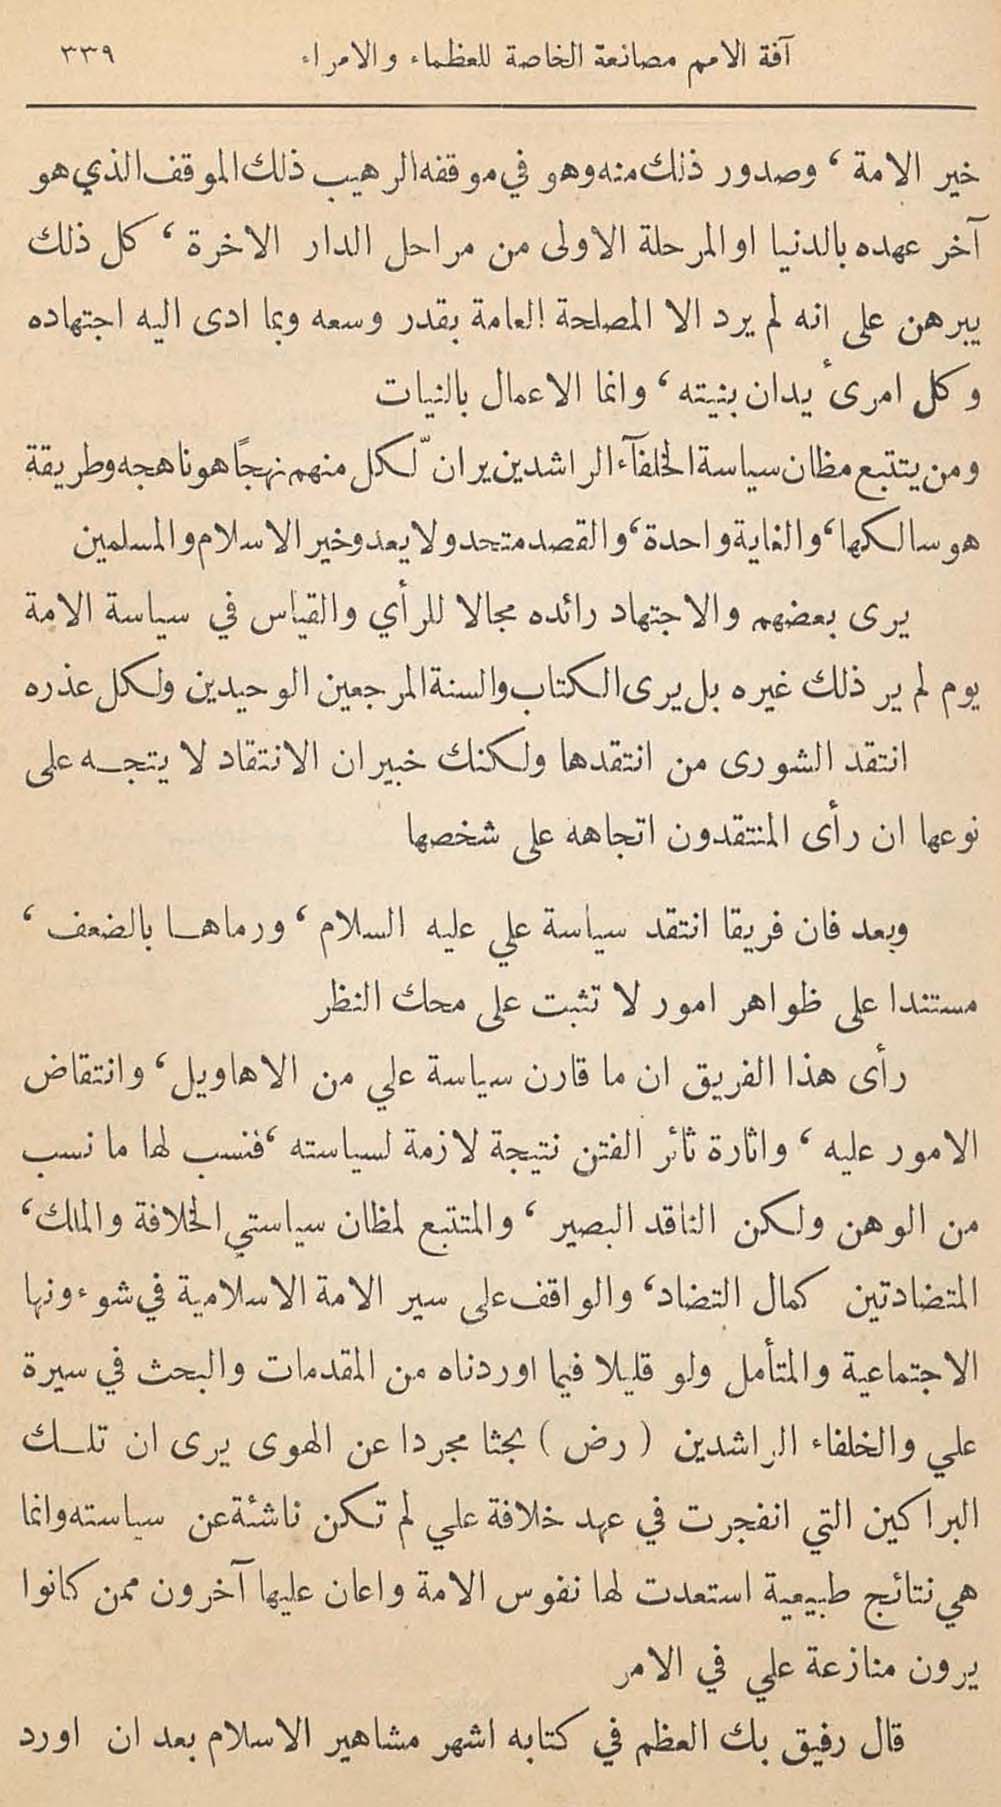 آفة الامم مصانعة الخاصة للعظماء والامراء ٣٣٩
خير الامة ، وصدور ذلك منه وهو في موقفه الرهيب ذلك الموقف الذي هو
آخر عهده بالدنيا او المرحلة الاولى من مراحل الدار الاخرة ، كل ذلك
يبرهن على انه لم يرد الا المصلحة العامة بقدر وسعه وبما ادى اليه اجتهاده
وكل امرئ يدان بنيته ، وانما الاعمال بالنيات
ومن يتتبع مظان سياسة الخلفآء الراشدين ير ان ّ لكل منهم نهجاً هو ناهجه وطريقة
هو سالكها ، والغاية واحدة ، والقصد متحد ولا يعدو خير الاسلام والمسلمين
يرى بعضهم والاجتهاد رائده مجالا للرأي والقياس في سياسة الامة
يوم لم ير ذلك غيره بل يرى الكتاب والسنة المرجعين الوحيدين ولكل عذره
انتقد الشورى من انتقدها ولكنك خبير ان الانتقاد لا يتجـه على
نوعها ان رأى المنتقدون اتجاهه على شخصها
وبعد فان فريقا انتقد سياسة علي عليه السلام ، ورماهـا بالضعف ،
مستندا على ظواهر امور لا تثبت على محك النظر
رأى هذا الفريق ان ما قارن سياسة علي من الاهاويل ، وانتقاض
الامور عليه ، واثارة ثائر الفتن نتيجة لازمة لسياسته ، فنسب لها ما نسب
من الوهن ولكن الناقد البصير ، والمتتبع لمظان سياستي الخلافة والملك ،
المتضادتين كمال التضاد ، والواقف على سير الامة الاسلامية في شوءونها
الاجتماعية والمتأمل ولو قليلا فيما اوردناه من المقدمات والبحث في سيرة
علي والخلفاء الراشدين ( رض ) بحثا مجردا عن الهوى يرى ان تلـك
البراكين التي انفجرت في عهد خلافة علي لم تكن ناشئة عن سياسته وانما
هي نتائج طبيعية استعدت لها نفوس الامة واعان عليها آخرون ممن كانوا
يرون منازعة علي في الامر
قال رفيق بك العظم في كتابه اشهر مشاهير الاسلام بعد ان اورد